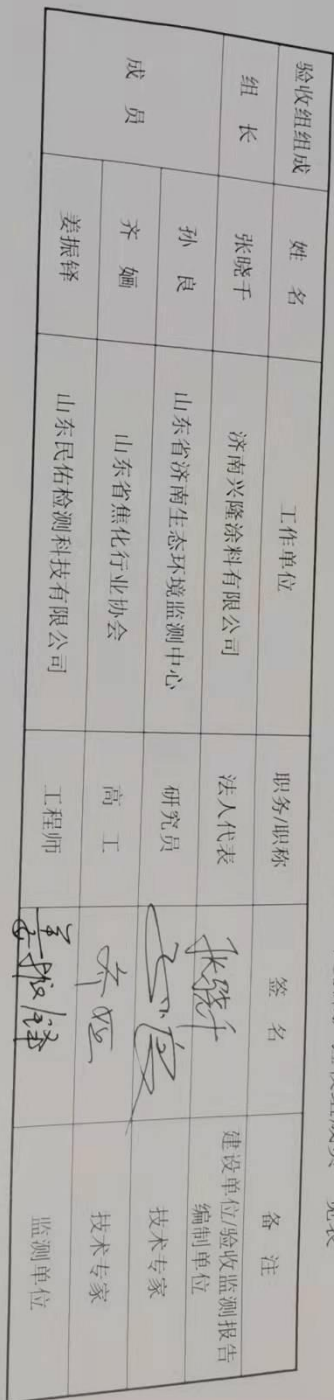 验收组成员一览表
验收组组成 姓 名 工作单位 职务/职称 签 名 备 注
组 长 张晓千 济南兴隆涂料有限公司 法人代表 张晓千 建设单位/验收监测报告
编制单位
成 员 孙 良 山东省济南生态环境监测中心 研究员 技术专家
齐 婳 山东省焦化行业协会 高 工 技术专家
姜振铎 山东民佑检测科技有限公司 工程师 姜振铎 监测单位